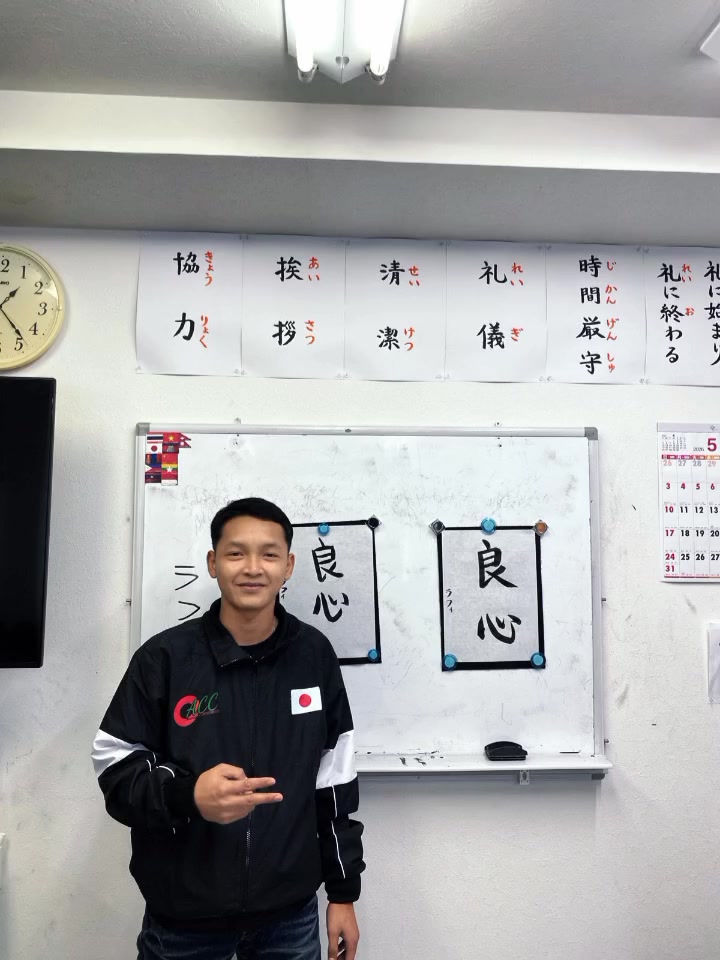 協力
きょうりょく
挨拶
あいさつ
清潔
せいけつ
礼儀
れいぎ
時間厳守
じかんげんしゅ
礼に始まり
礼に終わる
れい お
12 1 2 3 4 5
5
26 27 28 29
3 4 5 6
10 11 12 13
17 18 19 20
24 25 26 27
31
ラフ
良心
良心
ラフィ
ACC